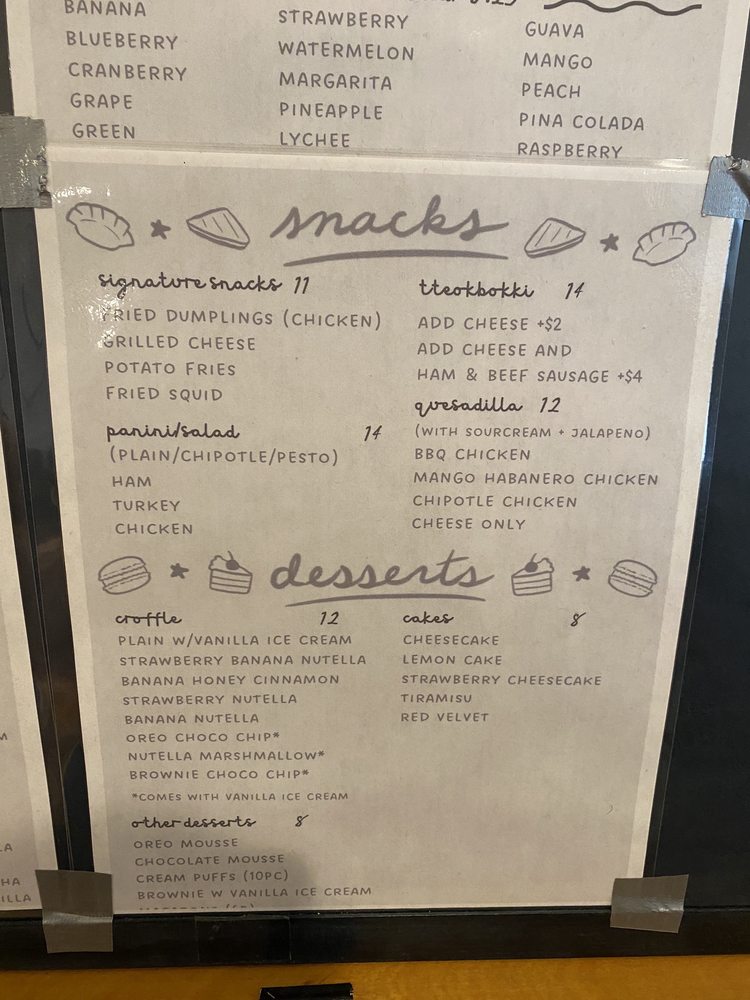 BANANA
BLUEBERRY
CRANBERRY
GRAPE
GREEN
STRAWBERRY
WATERMELON
MARGARITA
PINEAPPLE
LYCHEE
GUAVA
MANGO
PEACH
PINA COLADA
RASPBERRY
snacks
signature snacks 11
FRIED DUMPLINGS (CHICKEN)
GRILLED CHEESE
POTATO FRIES
FRIED SQUID
panini/salad 14
(PLAIN/CHIPOTLE/PESTO)
HAM
TURKEY
CHICKEN
tteokbokki 14
ADD CHEESE +$2
ADD CHEESE AND
HAM & BEEF SAUSAGE +$4
quesadilla 12
(WITH SOURCREAM + JALAPENO)
BBQ CHICKEN
MANGO HABANERO CHICKEN
CHIPOTLE CHICKEN
CHEESE ONLY
desserts
croffle 12
PLAIN W/VANILLA ICE CREAM
STRAWBERRY BANANA NUTELLA
BANANA HONEY CINNAMON
STRAWBERRY NUTELLA
BANANA NUTELLA
OREO CHOCO CHIP*
NUTELLA MARSHMALLOW*
BROWNIE CHOCO CHIP*
*COMES WITH VANILLA ICE CREAM
other desserts 8
OREO MOUSSE
CHOCOLATE MOUSSE
CREAM PUFFS (10PC)
BROWNIE W VANILLA ICE CREAM
cakes 8
CHEESECAKE
LEMON CAKE
STRAWBERRY CHEESECAKE
TIRAMISU
RED VELVET